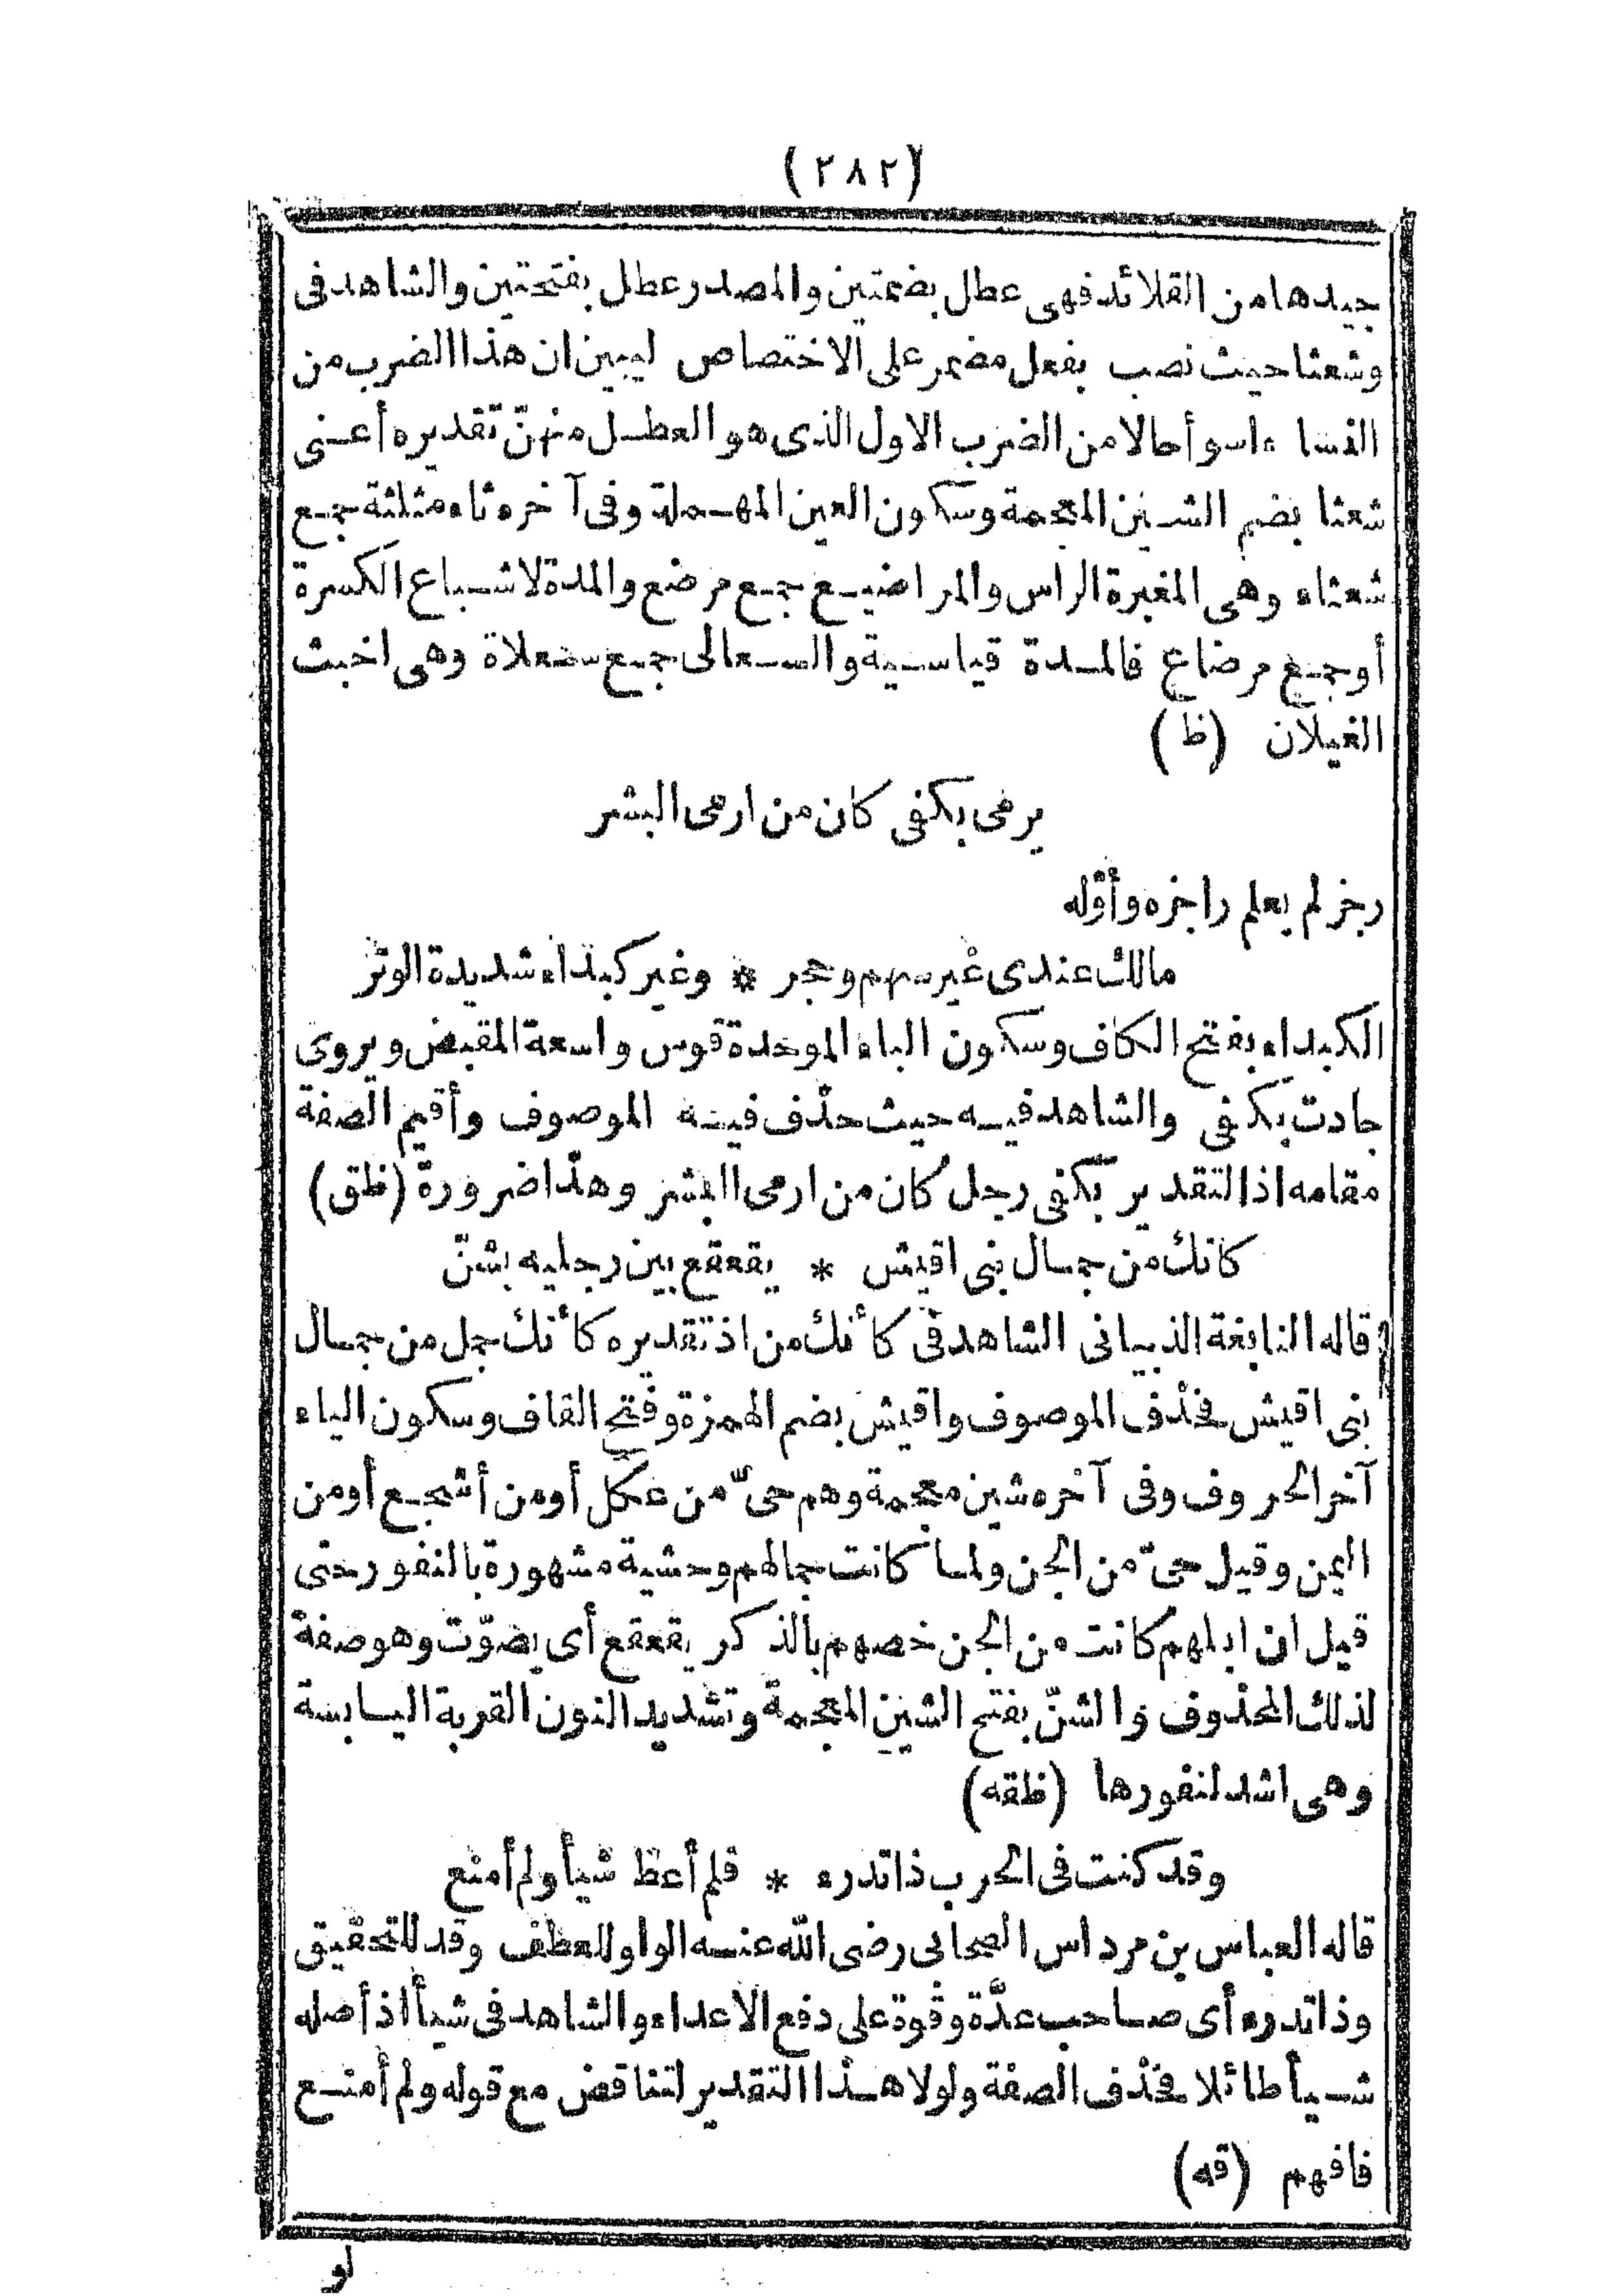 (٢٨٢)
جيدها من القلائد فهى عطل بضمتين والمصدر عطل بفتحتين والشاهد فى
وشعثا حيث نصب بفعل مضمر على الاختصاص ليبين ان هذا الضرب من
النساء اسوأ حالا من الضرب الاول الذى هو العطل منهنّ تقديره أعنى
شعثا بضم الشين المعجمة وسكون العين المهملة وفى آخره ثاء مثلثة جمع
شعثاء وهى المغبرة الراس والمراضيع جمع مرضع والمدة لاشباع الكسرة
أو جمع مرضاع فالمدة قياسية والسعالى جمع سعلاة وهى اخبث
الغيلان (ظ)
يرمى بكفى كان من ارمى البشر
رجز لم يعلم راجزه وأوّله
مالك عندى غير سهم وحجر * وغير كبداء شديدة الوتر
الكبداء بفتح الكاف وسكون الباء الموحدة قوس واسعة المقبض ويروى
جادت بكفى والشاهد فيه حيث حذف فيه الموصوف وأقيم الصفة
مقامه اذ التقدير بكفى رجل كان من ارمى البشر وهذا ضرورة (ظلق)
كانك من جمال بنى اقيش * يقعقع بين رجليه بشنّ
قاله النابغة الذبيانى الشاهد فى كأنك من اذ تقديره كأنك جمل من جمال
بنى اقيش فحذف الموصوف واقيش بضم الهمزة وفتح القاف وسكون الياء
آخر الحروف وفى آخره شين معجمة وهم حىّ من عكل أو من أشجع أو من
اليمن وقيل حىّ من الجن ولما كانت جمالهم وحشية مشهورة بالنفور حتى
قيل ان ابلهم كانت من الجن خصهم بالذكر يقعقع أى يصوّت وهو صفة
لذلك المحذوف والشنّ بفتح الشين المعجمة وتشديد النون القربة اليابسة
وهى اشد لنفورها (ظقه)
وقد كنت فى الحرب ذا تدره * فلم أعط شيأ ولم أمنع
قاله العباس بن مرداس الصحابى رضى الله عنه الواو للعطف وقد للتحقيق
وذا تدره أى صاحب عدّة وقوة على دفع الاعداء والشاهد فى شيأ اذ أصله
شيأ طائلا فحذف الصفة ولولا هذا التقدير لتناقض مع قوله ولم أمنع
فافهم (قه)
لو